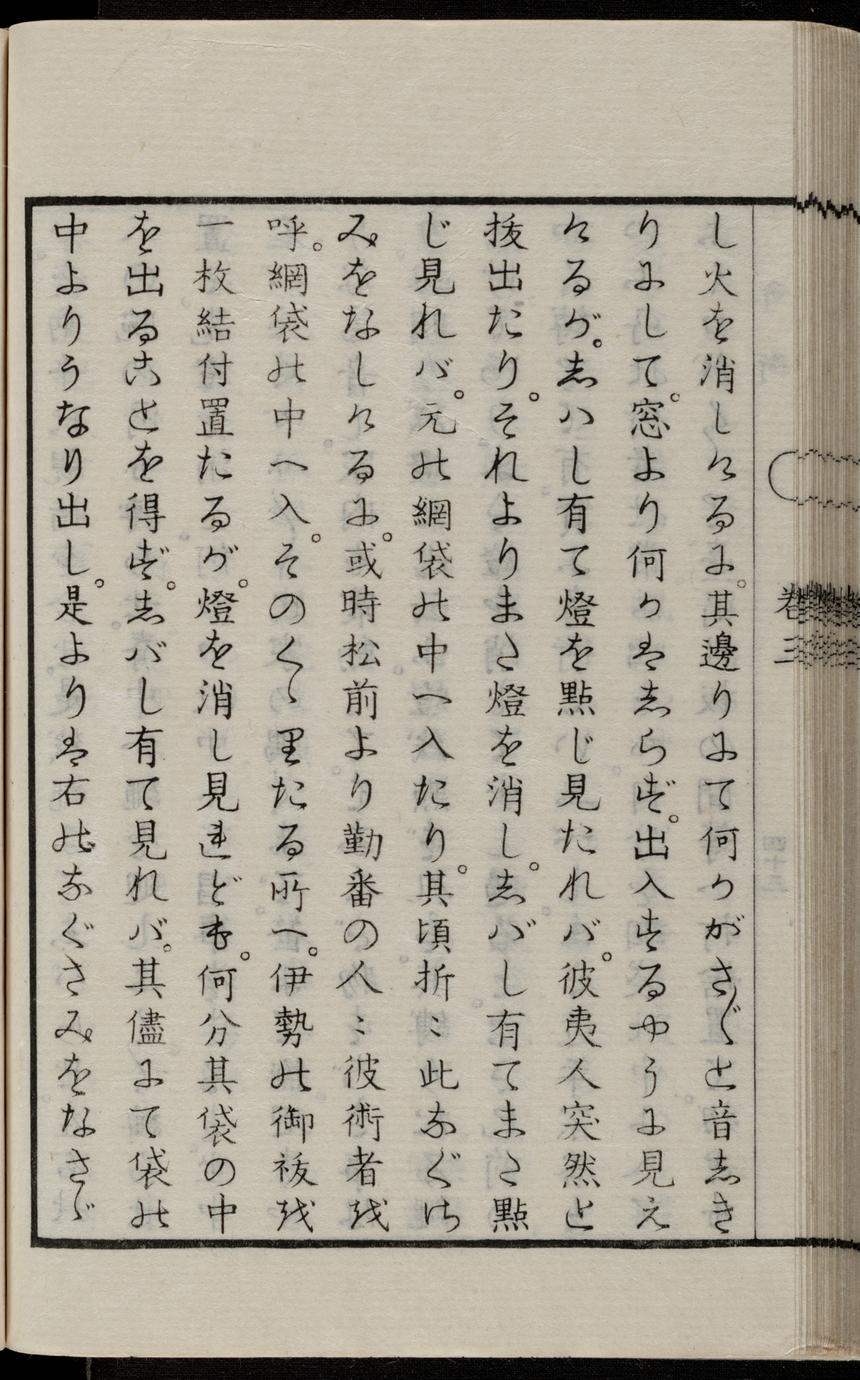 し火を消しけるに。其邊りにて何かがさ〴〵と音しき
りにして。窓より何かはしらず。出入するやうに見え
けるが。志ハし有て燈を點じ見たれバ。彼夷人突然と
抜出たり。それよりまた燈を消し。志バし有てまた點
じ見れバ。元の網袋の中へ入たり。其頃折〻此なぐさ
みをなしけるに。或時松前より勤番の人〻彼術者を
呼。網袋の中へ入。そのくゝ里たる所へ。伊勢の御祓を
一枚結付置たるが。燈を消し見れども。何分其袋の中
を出ることを得ず。志バし有て見れバ。其儘にて袋の
中よりうなり出し。是よりは右のなぐさみをなさゞ
卷三